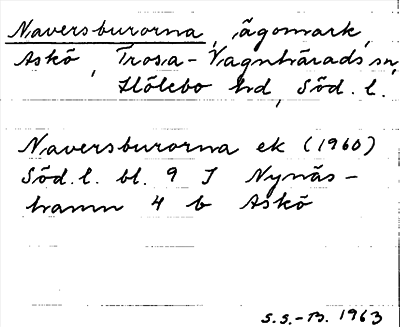 Naversburorna, ägomark,
Askö, Trosa-Vagnhärads sn,
Hölebo hd, Söd. l.
Naversburorna ek (1960)
Söd. l. bl. 9 I Nynäs-
hamn 4 b Askö
S.S.-B. 1963